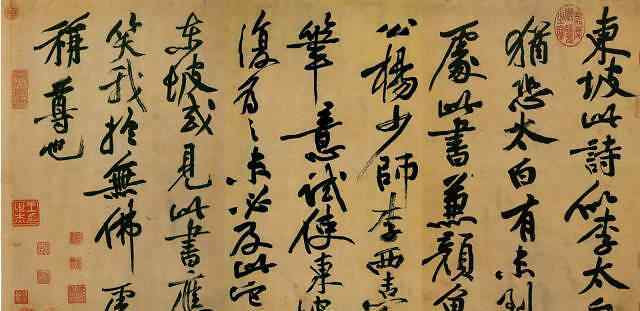 東坡此詩似李太白
猶恐太白有未到
處此書兼顏魯
公楊少師李西臺
筆意試使東坡
復為之未必及此它
東坡或見此書應
笑我於無佛處
稱尊也